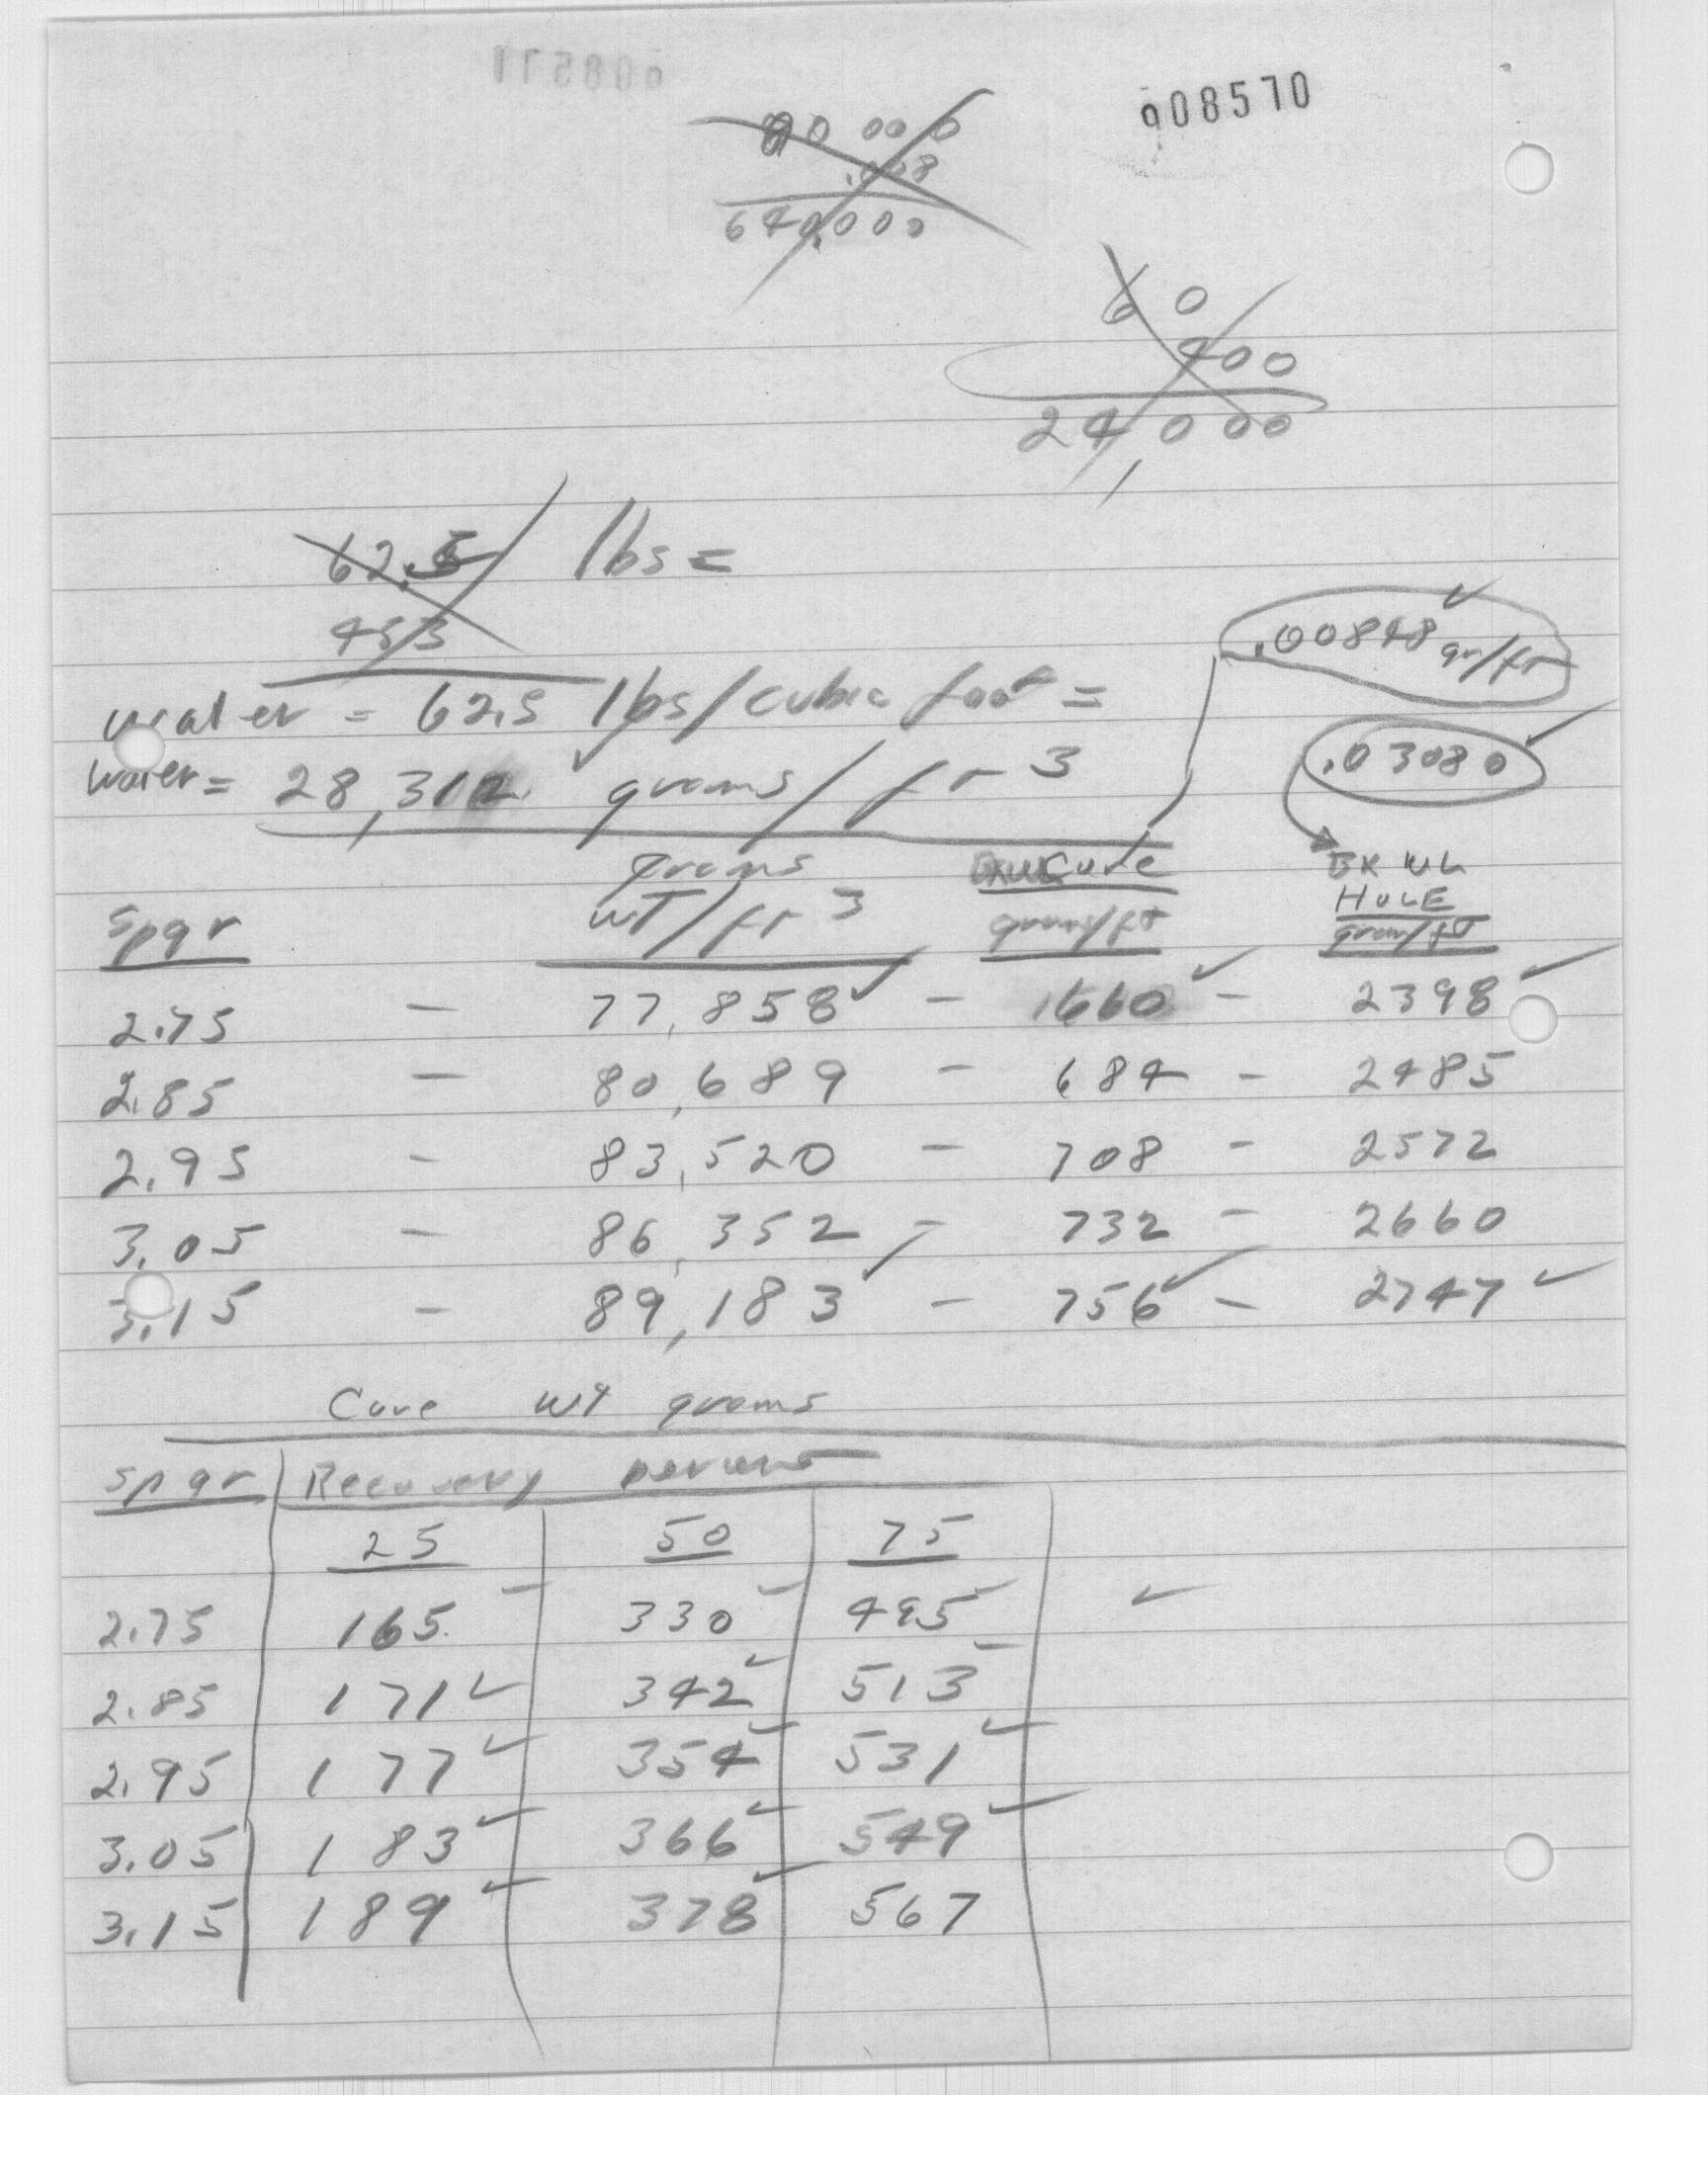 908570
80 000
.008
640,000
60
400
24,000
62.5 lbs =
453
water = 62.5 lbs/cubic foot =
.00848 gr/ft
water = 28,312 grams/ft 3
.03080
grams
Core
BX WL
HOLE
spgr wt/ft 3 grams/ft gram/ft
2.75 - 77,858 - 660 - 2398
2.85 - 80,689 - 684 - 2485
2.95 - 83,520 - 708 - 2572
3.05 - 86,352 - 732 - 2660
3.15 - 89,183 - 756 - 2747
Core wt grams
spgr Recovery percent
25 50 75
2.75 165 330 495
2.85 171 342 513
2.95 177 354 531
3.05 183 366 549
3.15 189 378 567